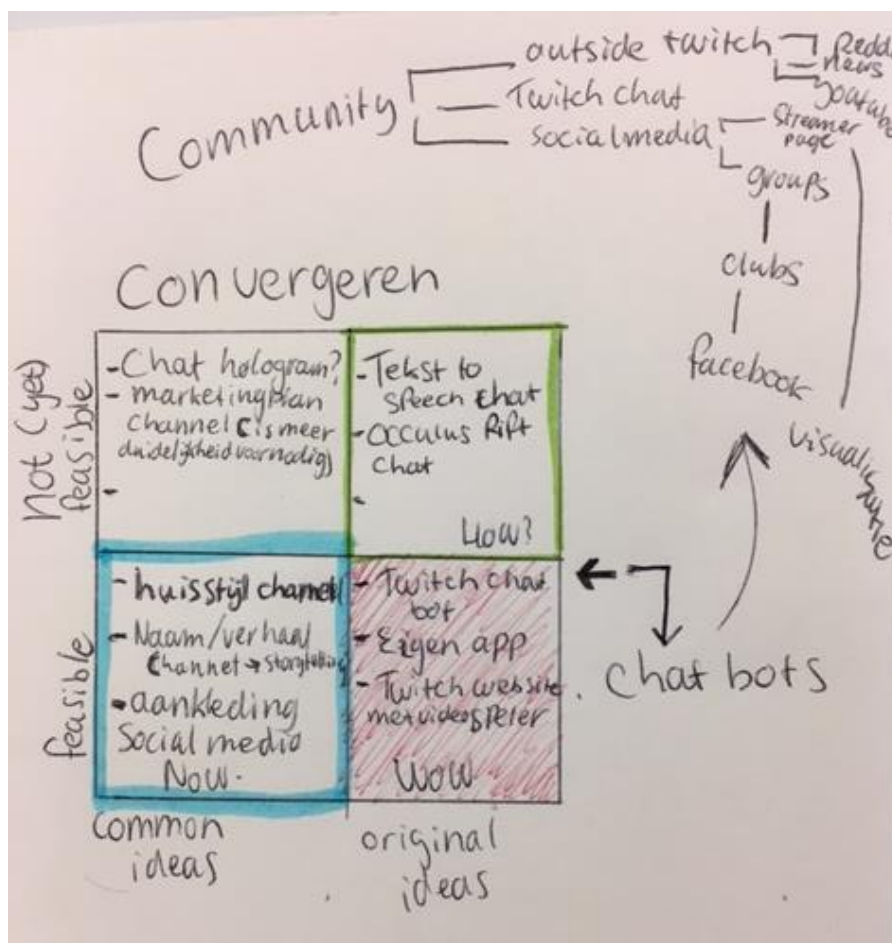 Community
outside twitch
Twitch chat
socialmedia
Redd
news
youtube
Streamer
page
groups
clubs
facebook
Convergeren
Not (yet)
feasible
- Chat hologram?
- marketingplan
Channel (is meer
duidelijkheid voor nodig)
-
- Tekst to
speech chat
- Occulus Rift
Chat
-
How?
feasible
- huisstijl channel
- Naam/verhaal
Channel → storytelling
- aankleding
Social media
Now.
- Twitch chat
bot
- Eigen app
- Twitch website
met videospeler
WOW
Chat bots
common
ideas
original
ideas